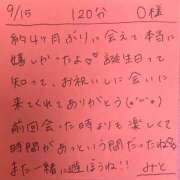 9/15 120分 O様
約4ヶ月ぶりに会えて本当に
嬉しかったよ♡誕生日って
知って、お祝いしに会いに
来てくれてありがとう(*^^*)
前回会った時よりも楽しくて
時間があっという間だったね
また一緒に遊ぼうね!! みと